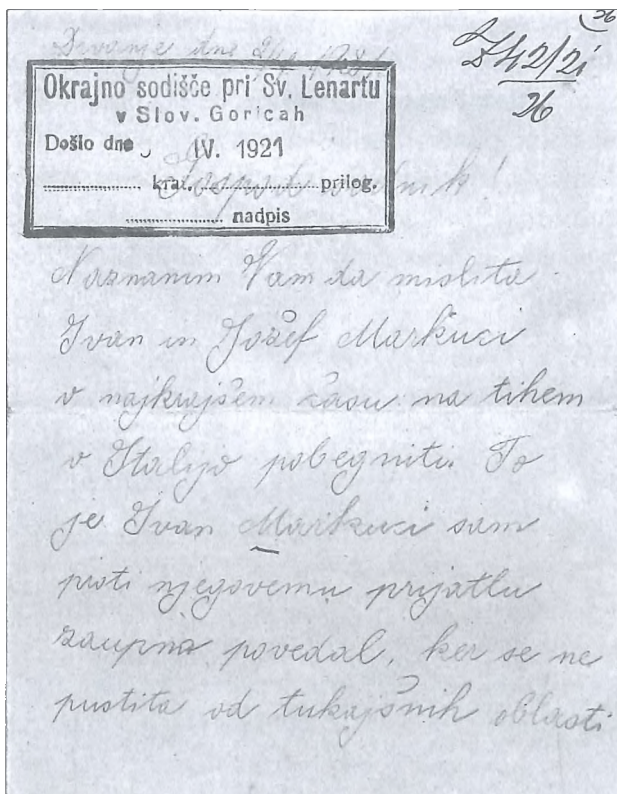 26
Z 42/21
26
dne 1921
Okrajno sodišče pri Sv. Lenartu
v Slov. Goricah
Došlo dne IV. 1921
krat. prilog.
nadpis
Gospod sodnik!
Naznanim Vam da mislita
Ivan in Jožef Markuci
v najkrajšem času na tihem
v Italijo pobegniti. To
je Ivan Markuci sam
proti njegovemu prijatlu
zaupno povedal, ker se ne
pustita od tukajšnih oblasti